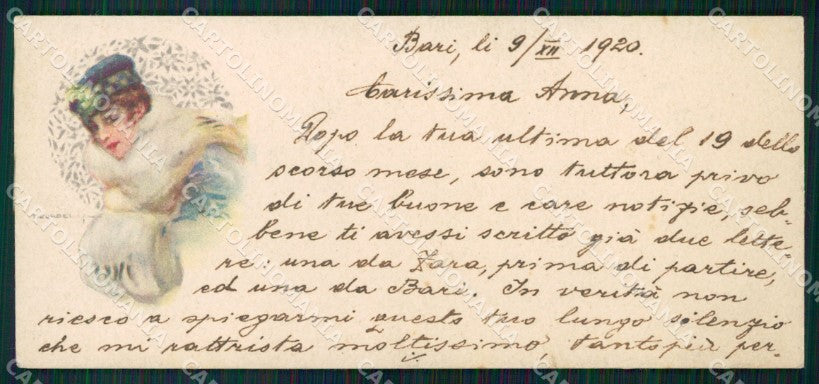 Bari, li 9/XII 1920.
Carissima Anna,
Dopo la tua ultima del 19 dello
scorso mese, sono tuttora privo
di tue buone e care notizie, seb-
bene ti avessi scritto già due lette-
re: una da Zara, prima di partire,
ed una da Bari. In verità non
riesco a spiegarmi questo tuo lungo silenzio
che mi rattrista moltissimo, tantopiù per-